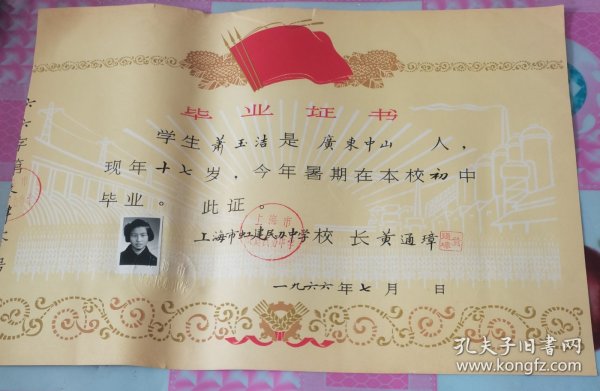 毕业证书
学生萧玉洁是廣東中山人，
现年十七岁，今年暑期在本校初中
毕业。此证。
上海市虹建民办中学校长黄通璋
一九六六年七月 日
上海市
孔夫子旧书网
www.kongfz.com